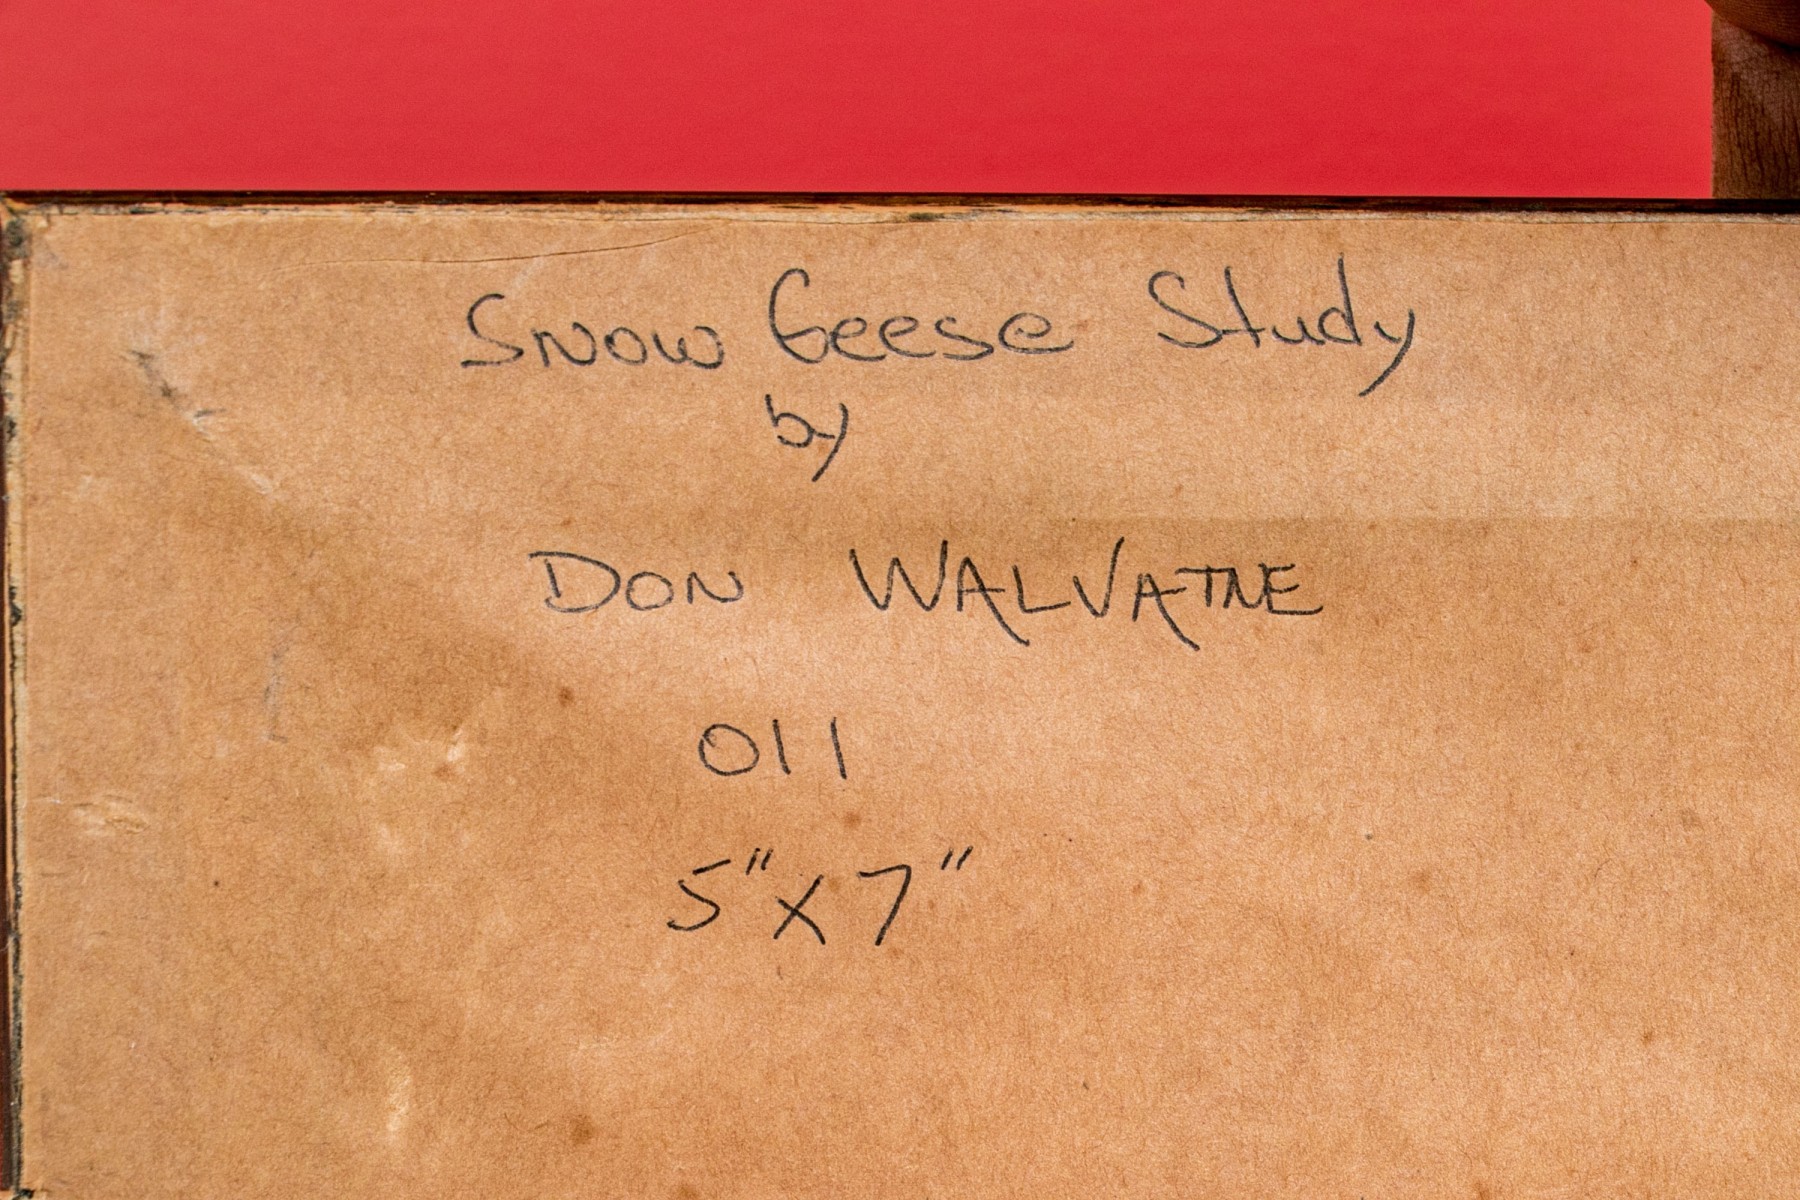 Snow Geese Study
by
DON WALVATNE
OIl
5" X 7"